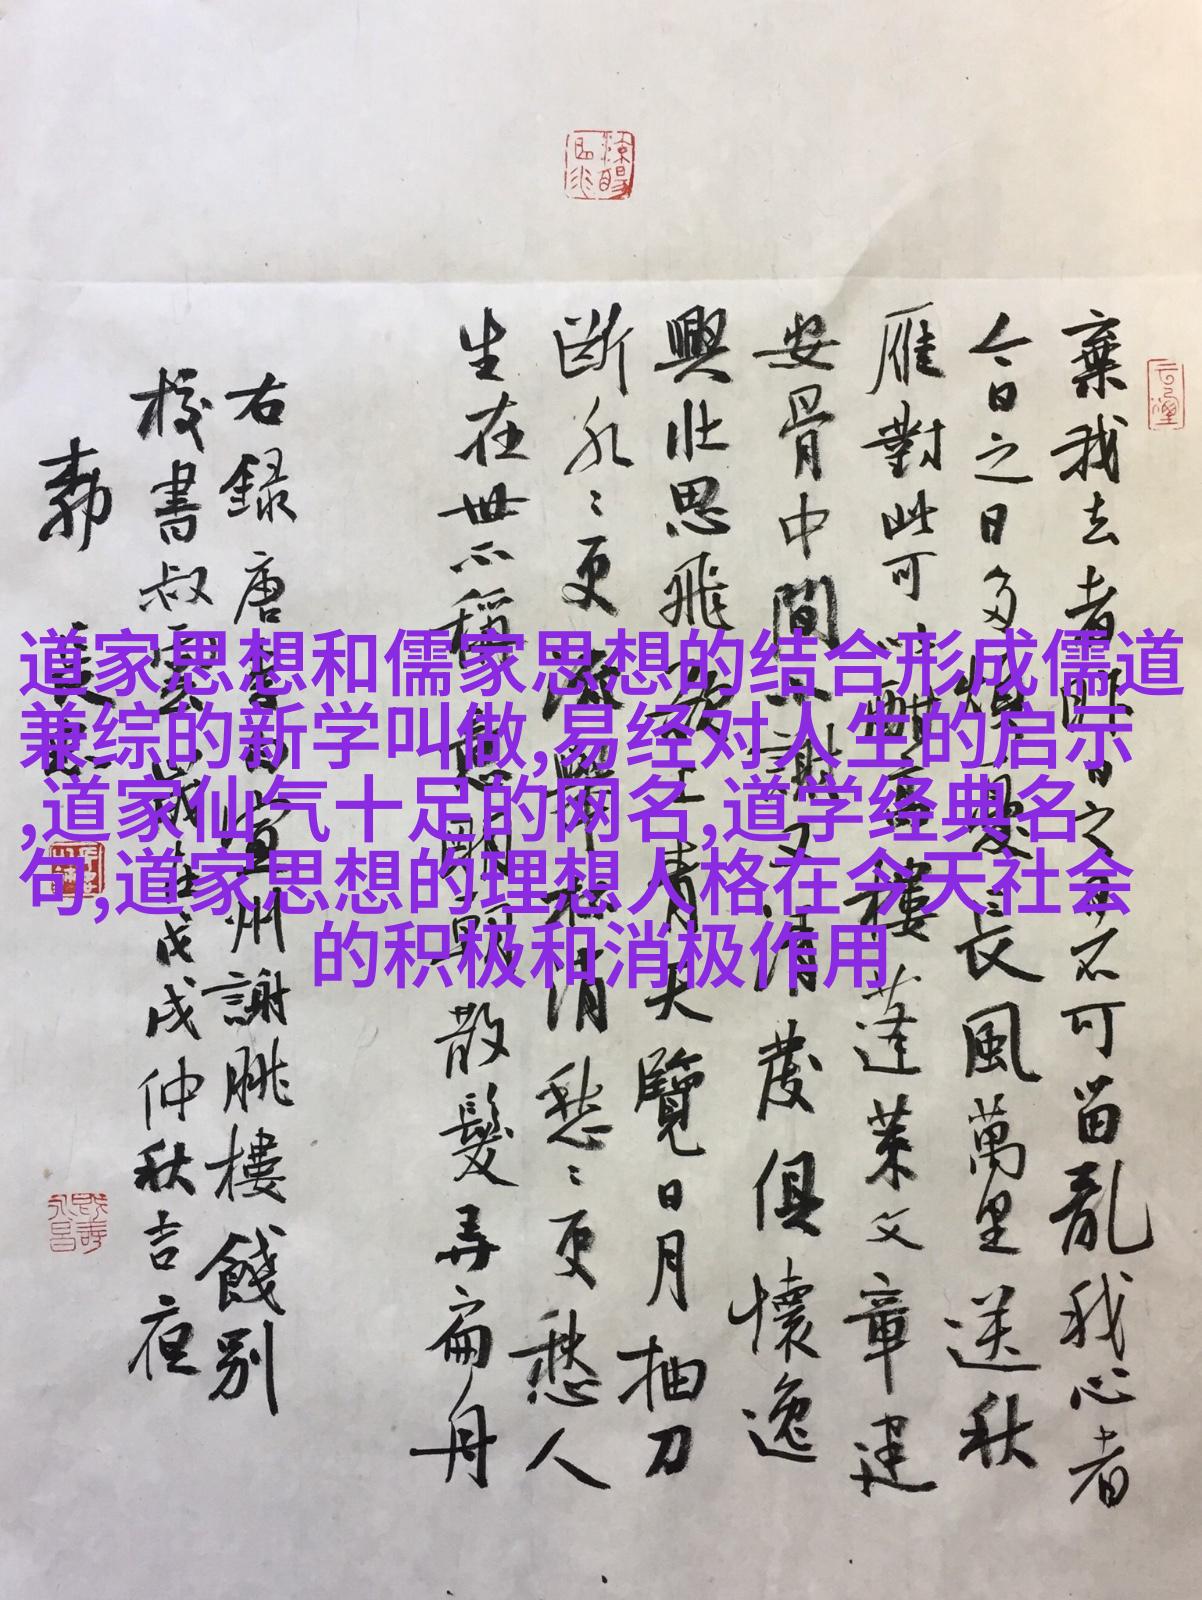 棄我去者昨日之日不可留亂我心者
今日之日多煩憂長風萬里送秋
雁對此可以酣高樓蓬萊文章建
安骨中間小謝又清發俱懷逸
興壯思飛欲上青天覽日月抽刀
斷水〻更流舉杯消愁〻更愁人
生在世不稱意明朝散髮弄扁舟
右錄唐李白宣州謝朓樓餞別
校書叔雲歲在戊戌仲秋吉夜
道家思想和儒家思想的结合形成儒道
兼综的新学叫做,易经对人生的启示
,道家仙气十足的网名,道学经典名
句,道家思想的理想人格在今天社会
的积极和消极作用